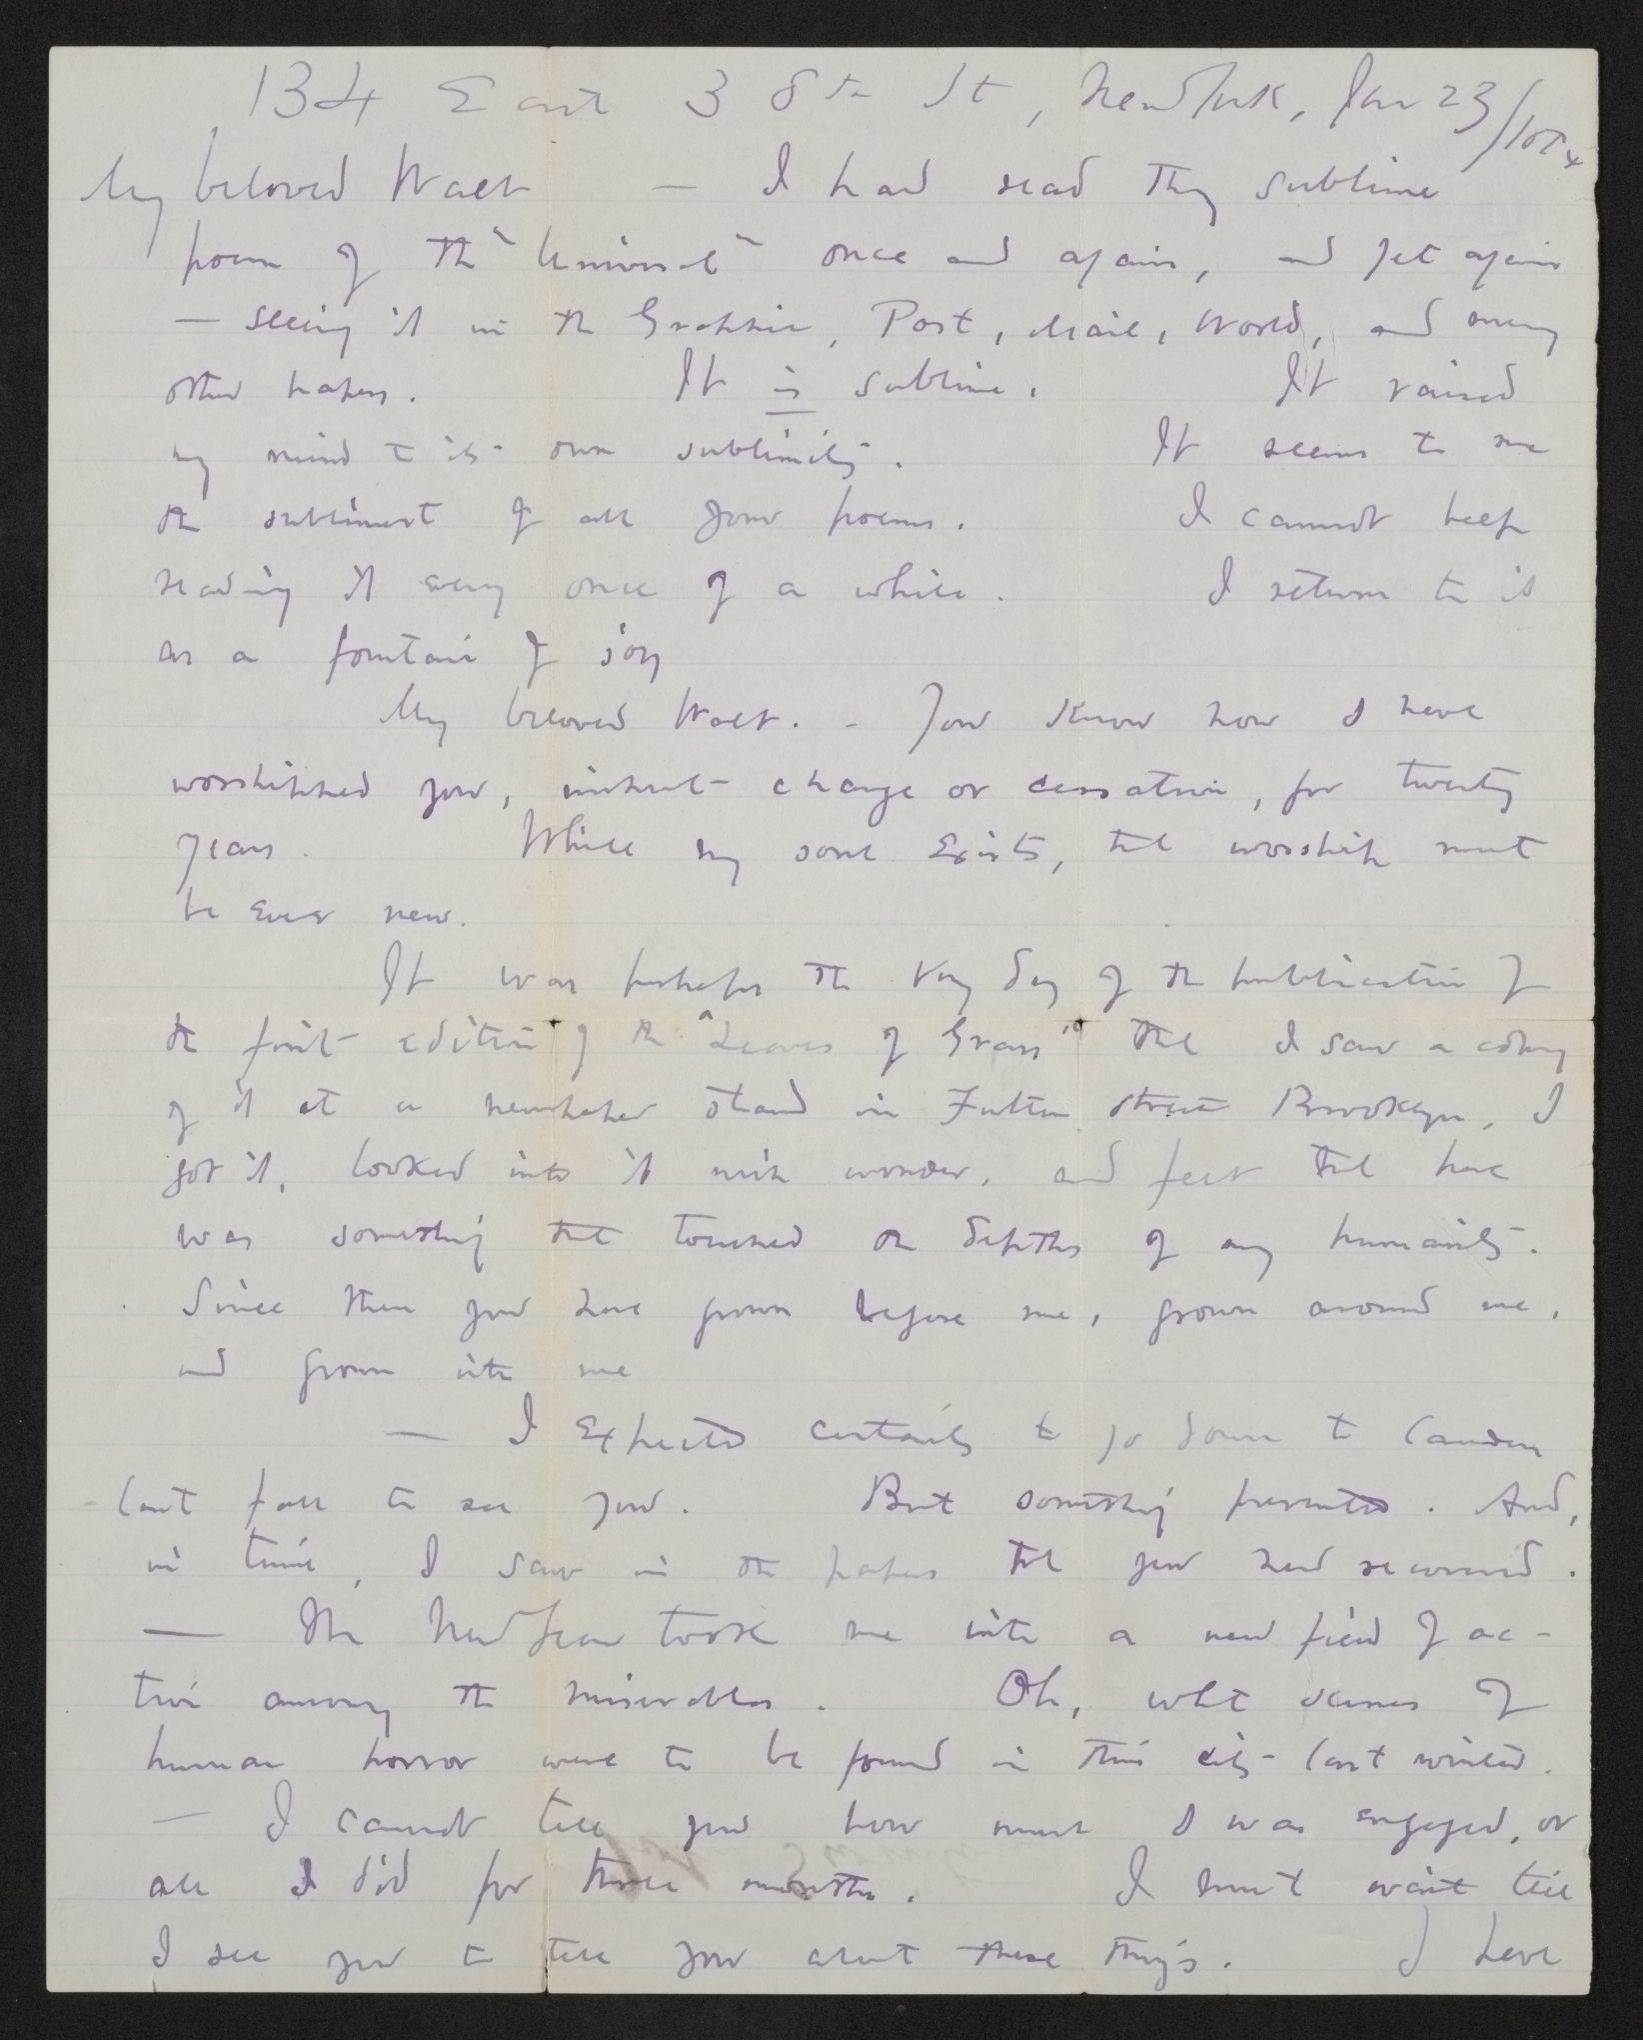 134 East 38th St, New York, Jan 23/1874
My beloved Walt — I had read the sublime
poem of the "Universal" once and again, and yet again
— seeing it in the Graphic, Post, Mail, World, and many
other papers. It is sublime. It raised
my mind to its own sublimity. It seems to me
the sublimest of all your poems. I cannot help
reading it every once of a while. I return to it
as a fountain of joy
My beloved Walt. - You know how I have
worshipped you, without change or cessation, for twenty
years. While my soul exists, that worship must
be ever new.
It was perhaps the very day of the publication of
the first edition of the "Leaves of Grass" that I saw a copy
of it at a newspaper stand in Fulton street Brooklyn, I
got it, looked into it with wonder, and felt that here
was something that touched on depths of my humanity.
Since then you have grown before me, grown around me,
and grown into me
— I expected certainly to go down to Camden
last fall to see you. But something prevented. And,
in time, I saw in the papers that you had recovered.
— The New Year took me into a new field of ac-
tion among the miserables. Oh, what scenes of
human horror were to be found in this city last winter.
— I cannot tell you how much I was engaged, or
all I did for three months. I must wait till
I see you to tell you about these things. I have